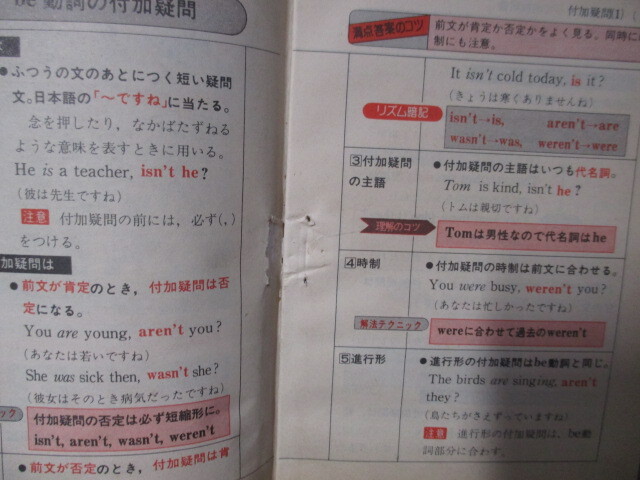 be 動詞の付加疑問
●ふつうの文のあとにつく短い疑問
文。日本語の「～ですね」に当たる。
念を押したり，なかばたずねる
ような意味を表すときに用いる。
He is a teacher, isn't he?
（彼は先生ですね）
注意 付加疑問の前には，必ず(，)
をつける。
加疑問は
●前文が肯定のとき，付加疑問は否
定になる。
You are young, aren't you?
（あなたは若いですね）
She was sick then, wasn't she?
（彼女はそのとき病気だったですね）
ック
付加疑問の否定は必ず短縮形に。
isn't, aren't, wasn't, weren't
●前文が否定のとき，付加疑問は肯
付加疑問(1)
満点答案のコツ
前文が肯定か否定かをよく見る。同時に
制にも注意。
It isn't cold today, is it?
（きょうは寒くありませんね）
リズム暗記
isn't→is, aren't→are
wasn't→was, weren't→were
③付加疑問
の主語
●付加疑問の主語はいつも代名詞。
Tom is kind, isn't he?
（トムは親切ですね）
理解のコツ
Tomは男性なので代名詞はhe
④時制
●付加疑問の時制は前文に合わせる。
You were busy, weren't you?
（あなたは忙しかったですね）
解法テクニック
wereに合わせて過去のweren't
⑤進行形
●進行形の付加疑問はbe動詞と同じ。
The birds are singing, aren't
they?
（鳥たちがさえずっていますね）
注意 進行形の付加疑問は，be動
詞部分に合わす。